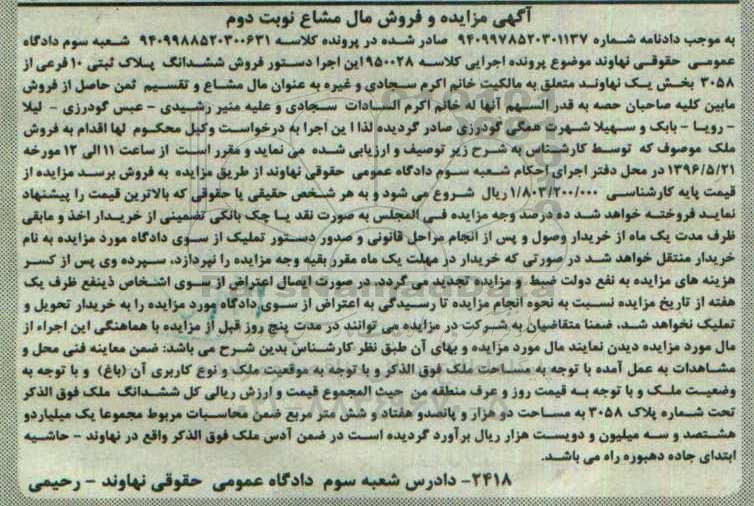 آگهی مزایده و فروش مال مشاع نوبت دوم
به موجب دادنامه شماره ۹۴۰۹۹۷۸۵۲۰۳۰۱۱۳۷ صادر شده در پرونده کلاسه ۹۴۰۹۹۸۸۵۲۰۳۰۰۶۳۱ شعبه سوم دادگاه
عمومی حقوقی نهاوند موضوع پرونده اجرایی کلاسه ۹۵۰۰۲۸ این اجرا دستور فروش ششدانگ پلاک ثبتی ۱۰ فرعی از
۳۰۵۸ بخش یک نهاوند متعلق به مالکیت خانم اکرم سجادی و غیره به عنوان مال مشاع و تقسیم ثمن حاصل از فروش
مابین کلیه صاحبان حصه به قدر السهم آنها له خانم اکرم السادات سجادی و علیه منیر رشیدی - عبس گودرزی - لیلا
- رویا - بابک و سهیلا شهرت همگی گودرزی صادر گردیده لذا این اجرا به درخواست وکیل محکوم لها اقدام به فروش
ملک موصوف که توسط کارشناس به شرح زیر توصیف و ارزیابی شده می نماید و مقرر است از ساعت ۱۱ الی ۱۲ مورخه
۱۳۹۶/۵/۲۱ در محل دفتر اجرای احکام شعبه سوم دادگاه عمومی حقوقی نهاوند از طریق مزایده به فروش برسد مزایده از
قیمت پایه کارشناسی ۱/۸۰۳/۲۰۰/۰۰۰ ریال شروع می شود و به هر شخص حقیقی یا حقوقی که بالاترین قیمت را پیشنهاد
نماید فروخته خواهد شد ده درصد وجه مزایده فی المجلس به صورت نقد یا چک بانکی تضمینی از خریدار اخذ و مابقی
ظرف مدت یک ماه از خریدار وصول و پس از انجام مراحل قانونی و صدور دستور تملیک از سوی دادگاه مورد مزایده به نام
خریدار منتقل خواهد شد در صورتی که خریدار در مهلت یک ماه مقرر بقیه وجه مزایده را نپردازد، سپرده وی پس از کسر
هزینه های مزایده به نفع دولت ضبط و مزایده تجدید می گردد در صورت ایصال اعتراض از سوی اشخاص ذینفع ظرف یک
هفته از تاریخ مزایده نسبت به نحوه انجام مزایده تا رسیدگی به اعتراض از سوی دادگاه مورد مزایده را به خریدار تحویل و
تملیک نخواهد شد، ضمنا متقاضیان به شرکت در مزایده می توانند در مدت پنج روز قبل از مزایده با هماهنگی این اجراء از
مال مورد مزایده دیدن نمایند مال مورد مزایده و بهای آن طبق نظر کارشناس بدین شرح می باشد: ضمن معاینه فنی محل و
مشاهدات به عمل آمده با توجه به مساحت ملک فوق الذکر و با توجه به موقعیت ملک و نوع کاربری آن (باغ) و با توجه به
وضعیت ملک و با توجه به قیمت روز و عرف منطقه من حیث المجموع قیمت و ارزش ریالی کل ششدانگ ملک فوق الذکر
تحت شماره پلاک ۳۰۵۸ به مساحت دو هزار و پانصدو هفتاد و شش متر مربع ضمن محاسبات مربوط مجموعا یک میلیاردو
هشتصد و سه میلیون و دویست هزار ریال برآورد گردیده است در ضمن آدس ملک فوق الذکر واقع در نهاوند - حاشیه
ابتدای جاده دهبوره راه می باشد.
۲۴۱۸- دادرس شعبه سوم دادگاه عمومی حقوقی نهاوند - رحیمی